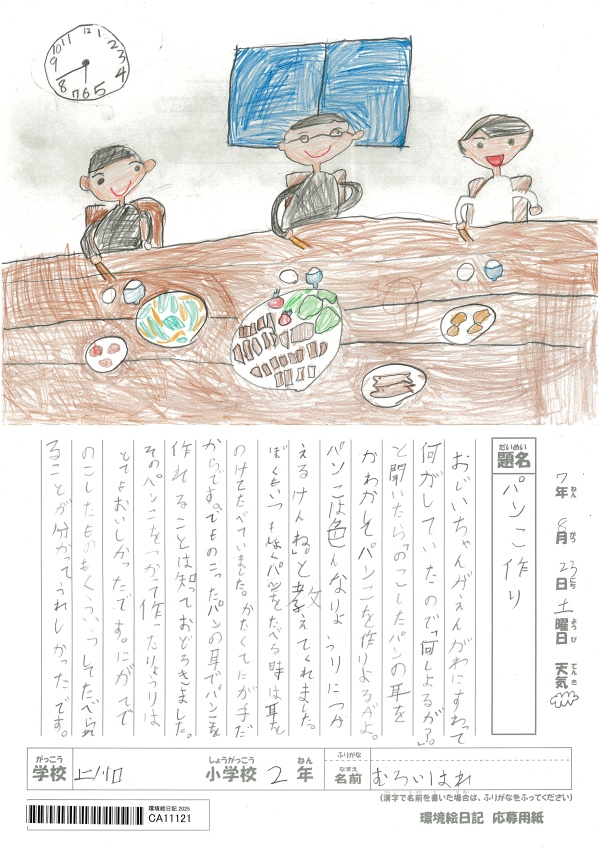 10 11 12 1 2 3 4 5 6 7 8 9
7年ねん 8月がつ 23日にち 土曜日ようび 天気てんき
だいめい
題名
パンこ作り
おじいちゃんがえんがわにすわって
何がしていたので「何しよるが?」
と聞いたら「のこしたパンの耳を
かわかしてパンこを作りよるがよ。
パンこは色んなりょうりにつか
えるけんね。」と教えてくれました。
ぼくもいつもしょくパンをたべる時は耳を
のけてたべていました。かたくてにが手だ
からです。でものこったパンの耳でパンこを
作れることは知っておどろきました。
そのパンこをつかって作ったりょうりは
とてもおいしかったです。にがてで
のこしたものもくふうしてたべられ
ることが分かってうれしかったです。
がっこう
学校
上川口
しょうがっこう
小学校
2
ねん
年
ふりがな
なまえ
名前
むろいはれ
(漢字で名前を書いた場合は、ふりがなをふってください)
環境絵日記 2025
CA11121
環境絵日記 応募用紙